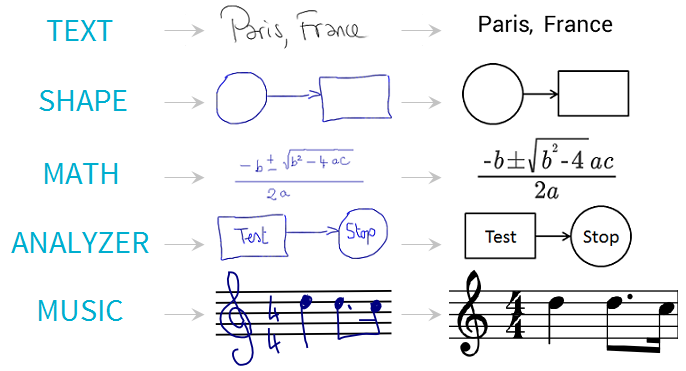 TEXT Paris, France Paris, France
SHAPE
MATH -b ± √b² - 4 ac / 2a -b±√b²-4 ac / 2a
ANALYZER Test Stop Test Stop
MUSIC 4 4 4 4